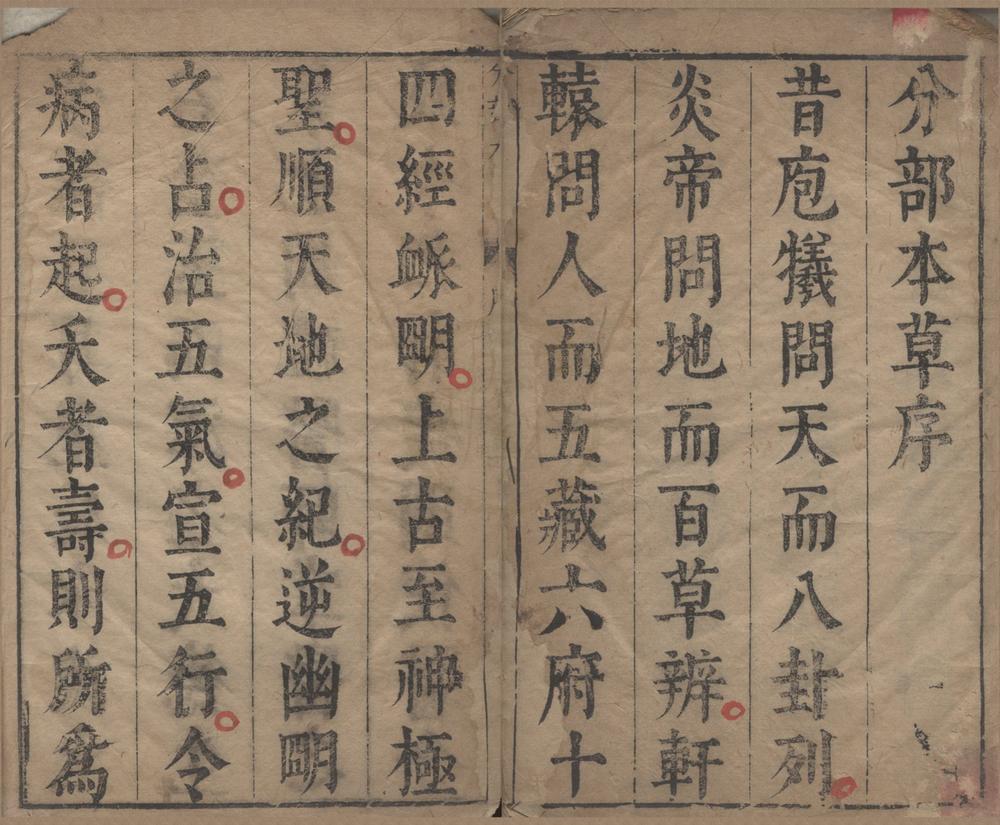 分部本草序
昔庖犧問天而八卦列
炎帝問地而百草辨軒
轅問人而五藏六府十
四經衇明上古至神極
聖順天地之紀逆幽明
之占治五氣宣五行令
病者起夭者壽則所爲